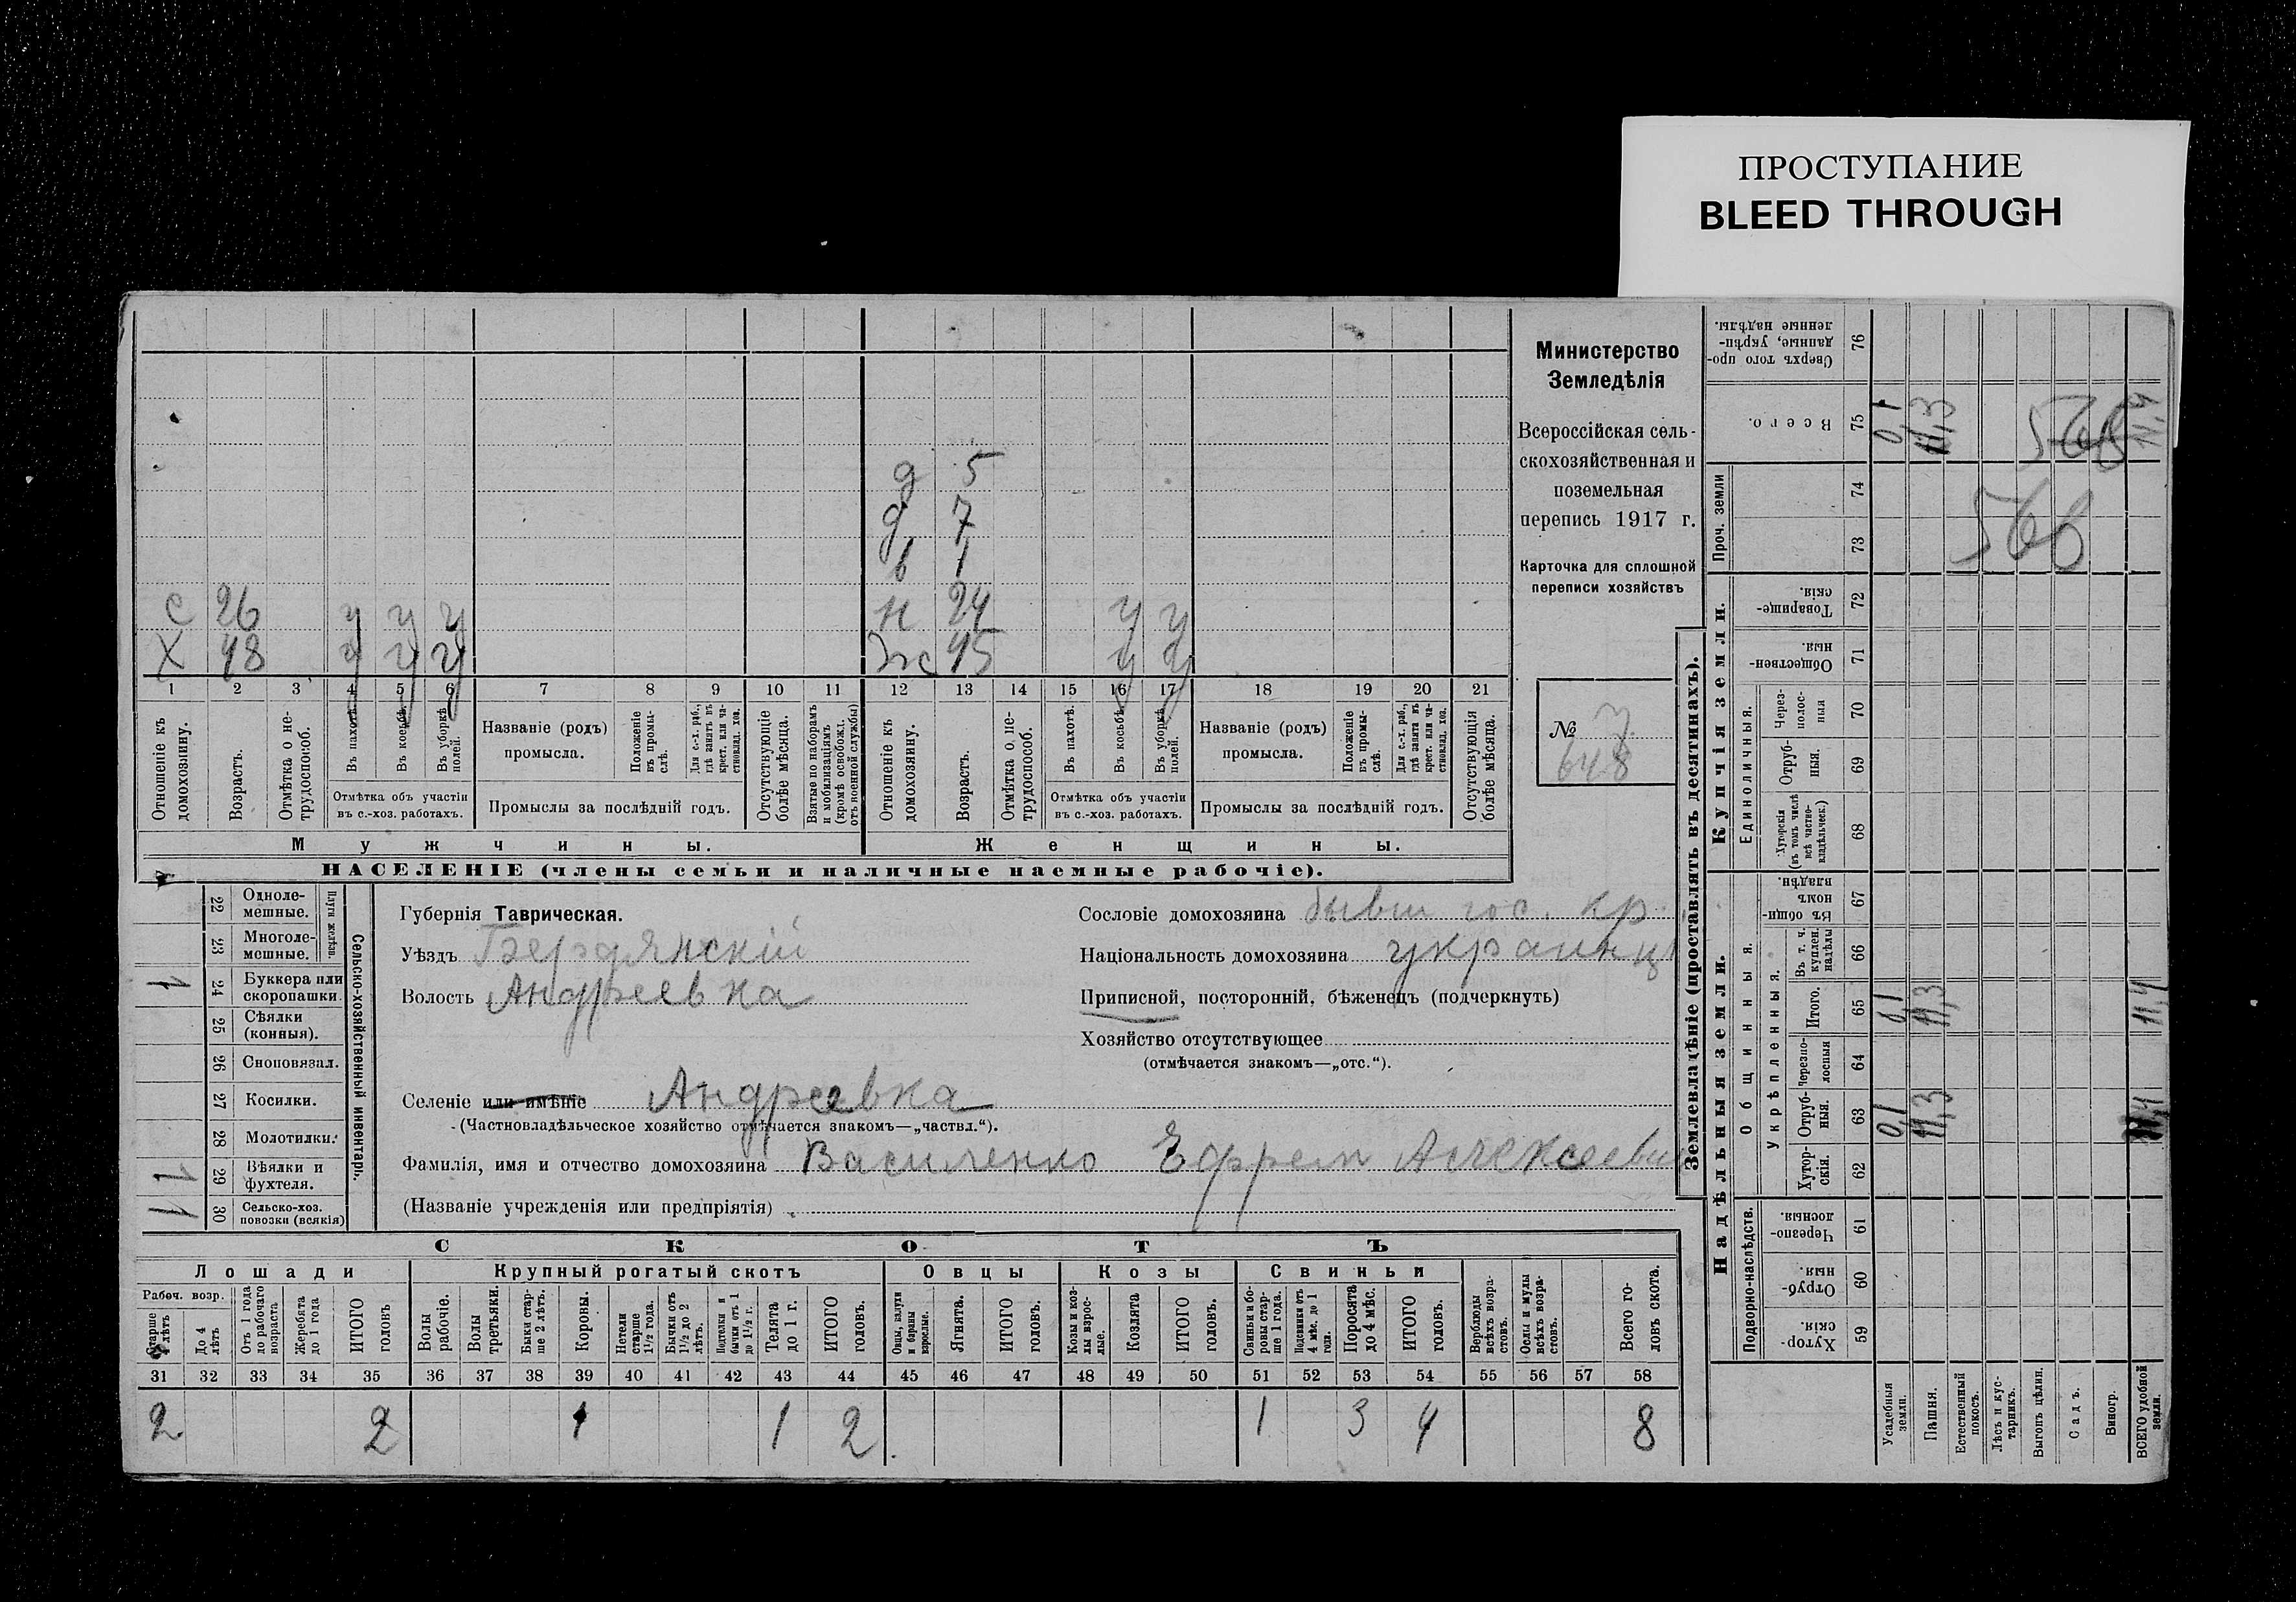 ПРОСТУПАНИЕ
BLEED THROUGH
д 5
д 7
в 1
с 26 у у у н 24 у у
х 48 у у у ж 45 у у
1 2 3 4 5 6 7 8 9 10 11 12 13 14 15 16 17 18 19 20 21
Отношеніе къ домохозяину.
Возрастъ.
Отмѣтка о нетрудоспособ.
Въ пахотѣ.
Въ косьбѣ.
Въ уборкѣ полей.
Отмѣтка объ участіи
въ с.-хоз. работахъ.
Названіе (родъ)
промысла.
Положеніе въ промыслѣ.
Для с.-х. раб., гдѣ занятъ въ крест. или частновлад. хоз.
Промыслы за послѣдній годъ.
Отсутствующіе болѣе мѣсяца.
Взятые по наборамъ и мобилизаціямъ (кромѣ освобожд. отъ военной службы)
Отношеніе къ домохозяину.
Возрастъ.
Отмѣтка о нетрудоспособ.
Въ пахотѣ.
Въ косьбѣ.
Въ уборкѣ полей.
Отмѣтка объ участіи
въ с.-хоз. работахъ.
Названіе (родъ)
промысла.
Положеніе въ промыслѣ.
Для с.-х. раб., гдѣ занята въ крест. или частновлад. хоз.
Промыслы за послѣдній годъ.
Отсутствующія болѣе мѣсяца.
Мужчины.
Женщины.
НАСЕЛЕНІЕ (члены семьи и наличные наемные рабочіе).
Министерство
Земледѣлія
Всероссійская сель-
скохозяйственная и
поземельная
перепись 1917 г.
Карточка для сплошной
переписи хозяйствъ
№ 7
648
22 Одноле-
мешные.
23 Многоле-
мешные.
Плуги желѣзн.
1 24 Буккера или
скоропашки.
25 Сѣялки
(конныя).
26 Сноповязал.
27 Косилки.
28 Молотилки.
1 29 Вѣялки и
фухтеля.
30 Сельско-хоз.
повозки (всякія)
Сельско-хозяйственный инвентарь.
Губернія Таврическая.
Уѣздъ Бердянскій
Волость Андреевка
Сословіе домохозяина бывш гос. кр.
Національность домохозяина украинц
Приписной, посторонній, бѣженецъ (подчеркнуть)
Хозяйство отсутствующее
(отмѣчается знакомъ—„отс.“).
Селеніе или имѣніе Андреевка
(Частновладѣльческое хозяйство отмѣчается знакомъ—„частвл.“).
Фамилія, имя и отчество домохозяина Василенко Ефрем Алексеевич
(Названіе учрежденія или предпріятія)
СКОТЪ
Лошади
Крупный рогатый скотъ
Овцы
Козы
Свиньи
Рабоч. возр.
Старше 4 лѣтъ
До 4 лѣтъ
Отъ 1 года до рабочаго возраста
Жеребята до 1 года
ИТОГО головъ
Волы рабочіе.
Волы третьяки.
Быки старше 2 лѣтъ.
Коровы.
Нетели старше 1½ года.
Бычки отъ 1½ до 2 лѣтъ.
Подтелки и бычки отъ 1 до 1½ г.
Телята до 1 г.
ИТОГО головъ.
Овцы, валухи и бараны взрослые.
Ягнята.
ИТОГО головъ.
Козы и козлы взрослые.
Козлята
ИТОГО головъ.
Свиньи и боровы старше 1 года.
Подсвинки отъ 4 мѣс. до 1 года.
Поросята до 4 мѣс.
ИТОГО головъ.
Верблюды всѣхъ возрастовъ.
Ослы и мулы всѣхъ возрастовъ.
Всего головъ скота.
31 32 33 34 35 36 37 38 39 40 41 42 43 44 45 46 47 48 49 50 51 52 53 54 55 56 57 58
2 2 1 1 2 1 3 4 8
Землевладѣніе (проставлять въ десятинахъ).
Сверхъ того проданные, укрѣпленные надѣлы. 76
Всего. 75 0,1 11,3 568 11,4
Проч. земли
74
73
568
Купчія земли.
Товарищескія. 72
Общественныя. 71
Единоличныя.
Черезполосныя 70
Отрубныя. 69
Хуторскія (въ томъ числѣ всѣ частновладѣльческ.) 68
Надѣльныя земли.
Общинныя.
Въ общинномъ владѣн. 67
Укрѣпленныя.
Въ т. ч. куплен. надѣлы 66
Итого. 65 0,1 11,3 11,4
Черезполосныя 64
Отрубныя. 63 0,1 11,3 11,4
Хуторскія. 62
Подворно-наслѣдств.
Черезполосныя. 61
Отрубныя. 60
Хуторскія. 59
Усадебныя земли.
Пашня.
Естественный покосъ.
Лѣсъ и кустарникъ.
Выгонъ цѣлин.
Садъ.
Виногр.
ВСЕГО удобной земли.